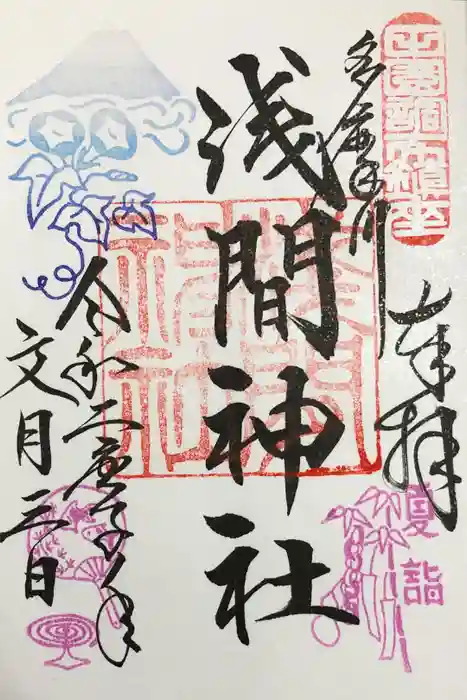 奉拝
夏詣
多摩川
浅間神社
令和二庚子ノ年
文月三日